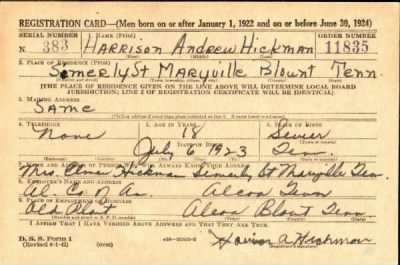 REGISTRATION CARD—(Men born on or after January 1, 1922 and on or before June 30, 1924)
SERIAL NUMBER 1. NAME (Print) ORDER NUMBER
N 383 HARRISON Andrew Hickman 11835
2. PLACE OF RESIDENCE (Print)
Somerly St Maryville Blount Tenn.
[THE PLACE OF RESIDENCE GIVEN ON THE LINE ABOVE WILL DETERMINE LOCAL BOARD
JURISDICTION; LINE 2 OF REGISTRATION CERTIFICATE WILL BE IDENTICAL]
3. MAILING ADDRESS
SAME
4. TELEPHONE 5. AGE IN YEARS 6. PLACE OF BIRTH
None 18 Sevier
DATE OF BIRTH
July 6 1923 Ten.
7. NAME AND ADDRESS OF PERSON WHO WILL ALWAYS KNOW YOUR ADDRESS
Mrs. Elmer Hickman St Maryville Ten.
8. EMPLOYER'S NAME AND ADDRESS
Al. Co. Alcoa Tenn
9. PLACE OF EMPLOYMENT OR BUSINESS
Plant Alcoa Blount Tenn
I AFFIRM THAT I HAVE VERIFIED ABOVE ANSWERS AND THAT THEY ARE TRUE.
D. S. S. Form 1
(Revised 6-1-42) (over) Harrison A Hickman